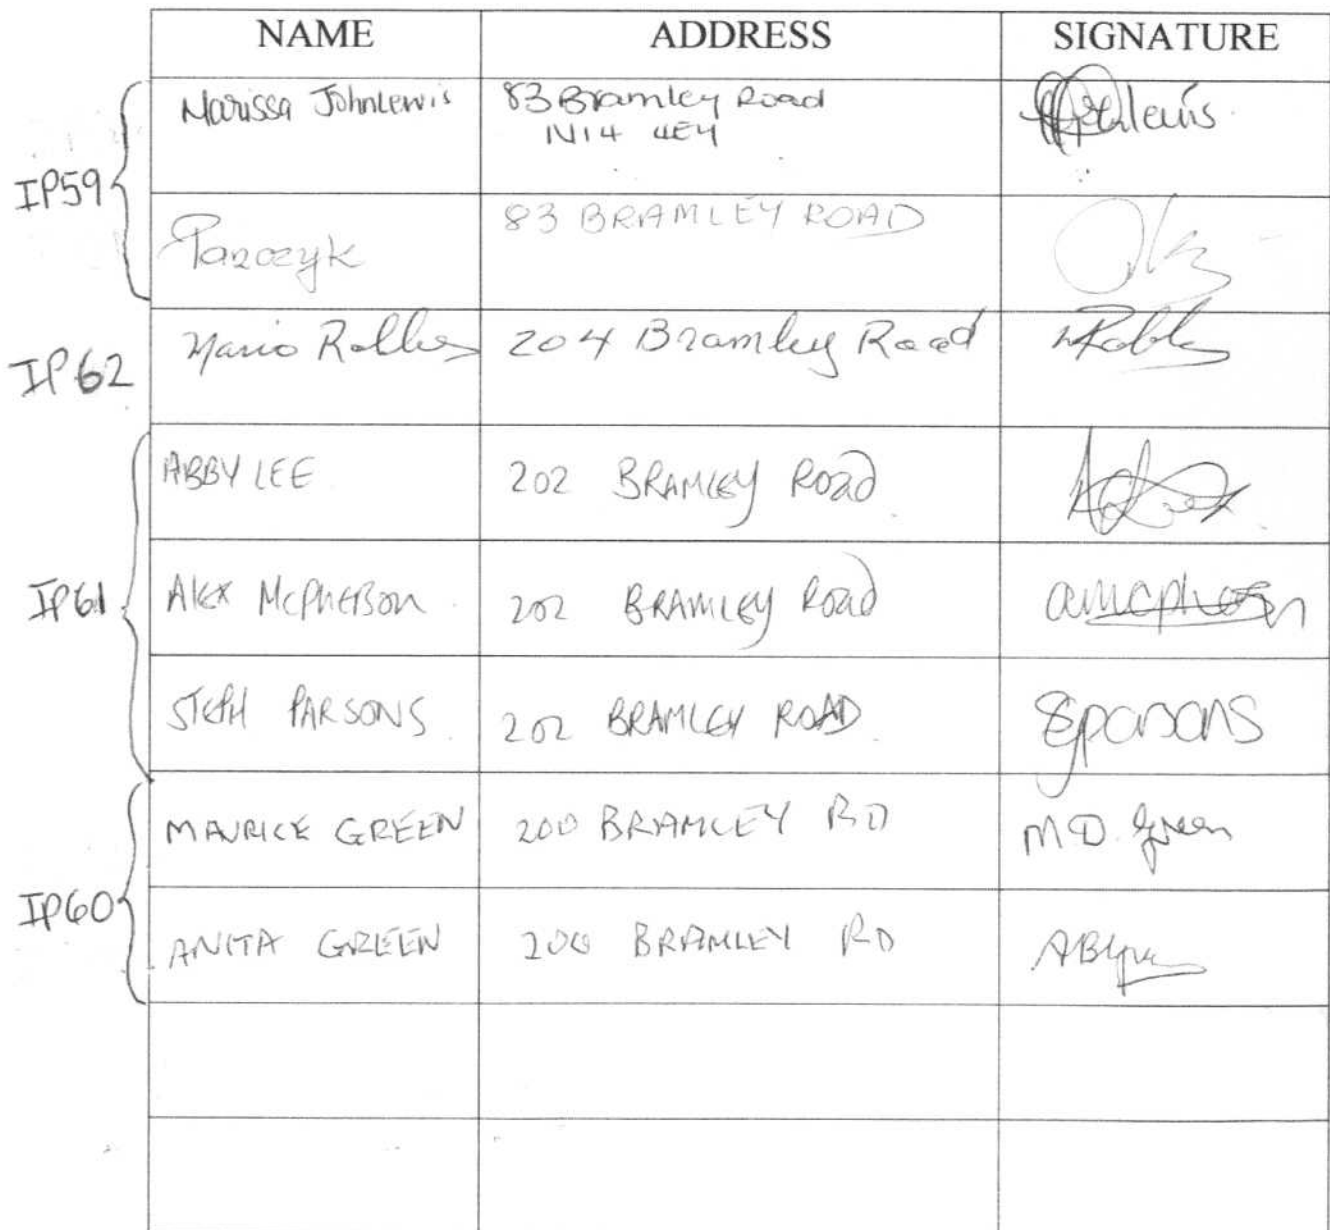 NAME ADDRESS SIGNATURE
IP59
Marissa Johnlewis 83 Bramley Road
N14 4EY
83 BRAMLEY ROAD
IP62 Mario Robles 204 Bramley Road MRobles
IP61
ABBY LEE 202 BRAMLEY ROAD
ALEX MCPHERSON 202 BRAMLEY ROAD amcpherson
STEPH PARSONS 202 BRAMLEY ROAD Sparsons
IP60
MAURICE GREEN 200 BRAMLEY RD M D Green
ANITA GREEN 200 BRAMLEY RD